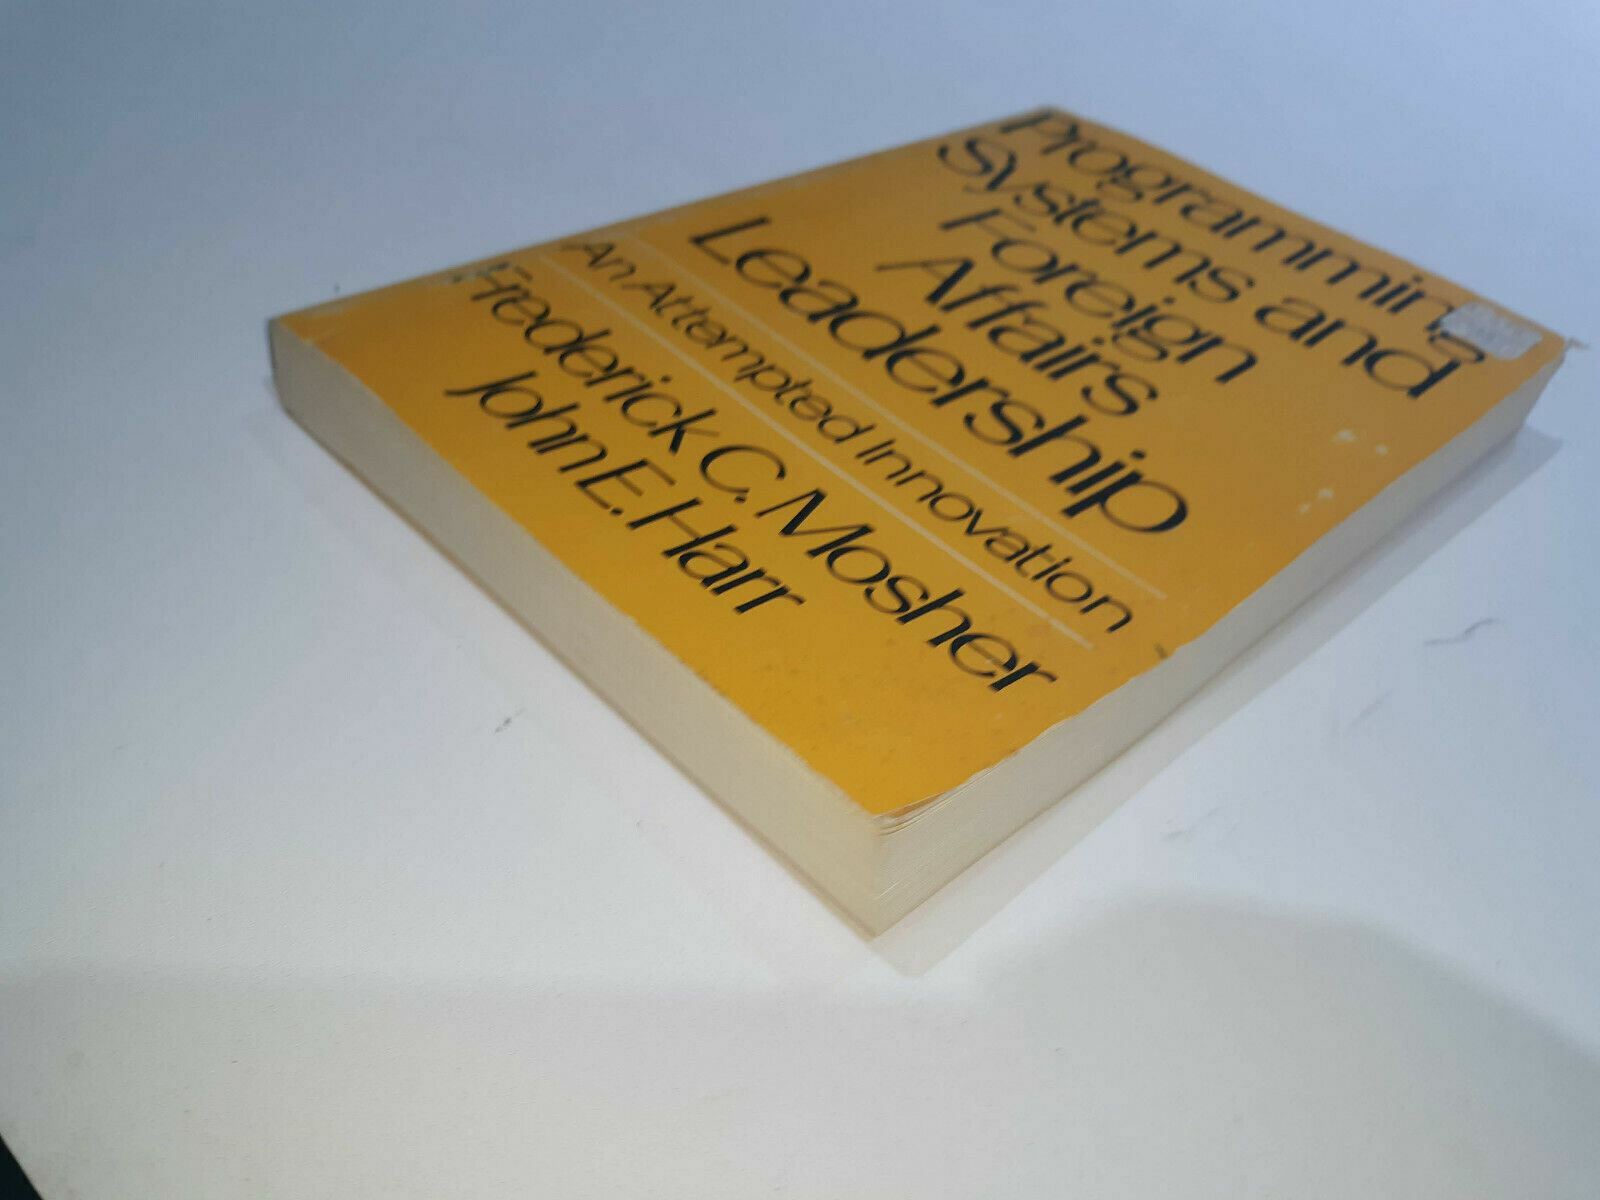 Programming
Systems and
Foreign
Affairs
Leadership
An Attempted Innovation
Frederick C. Mosher
John E. Harr